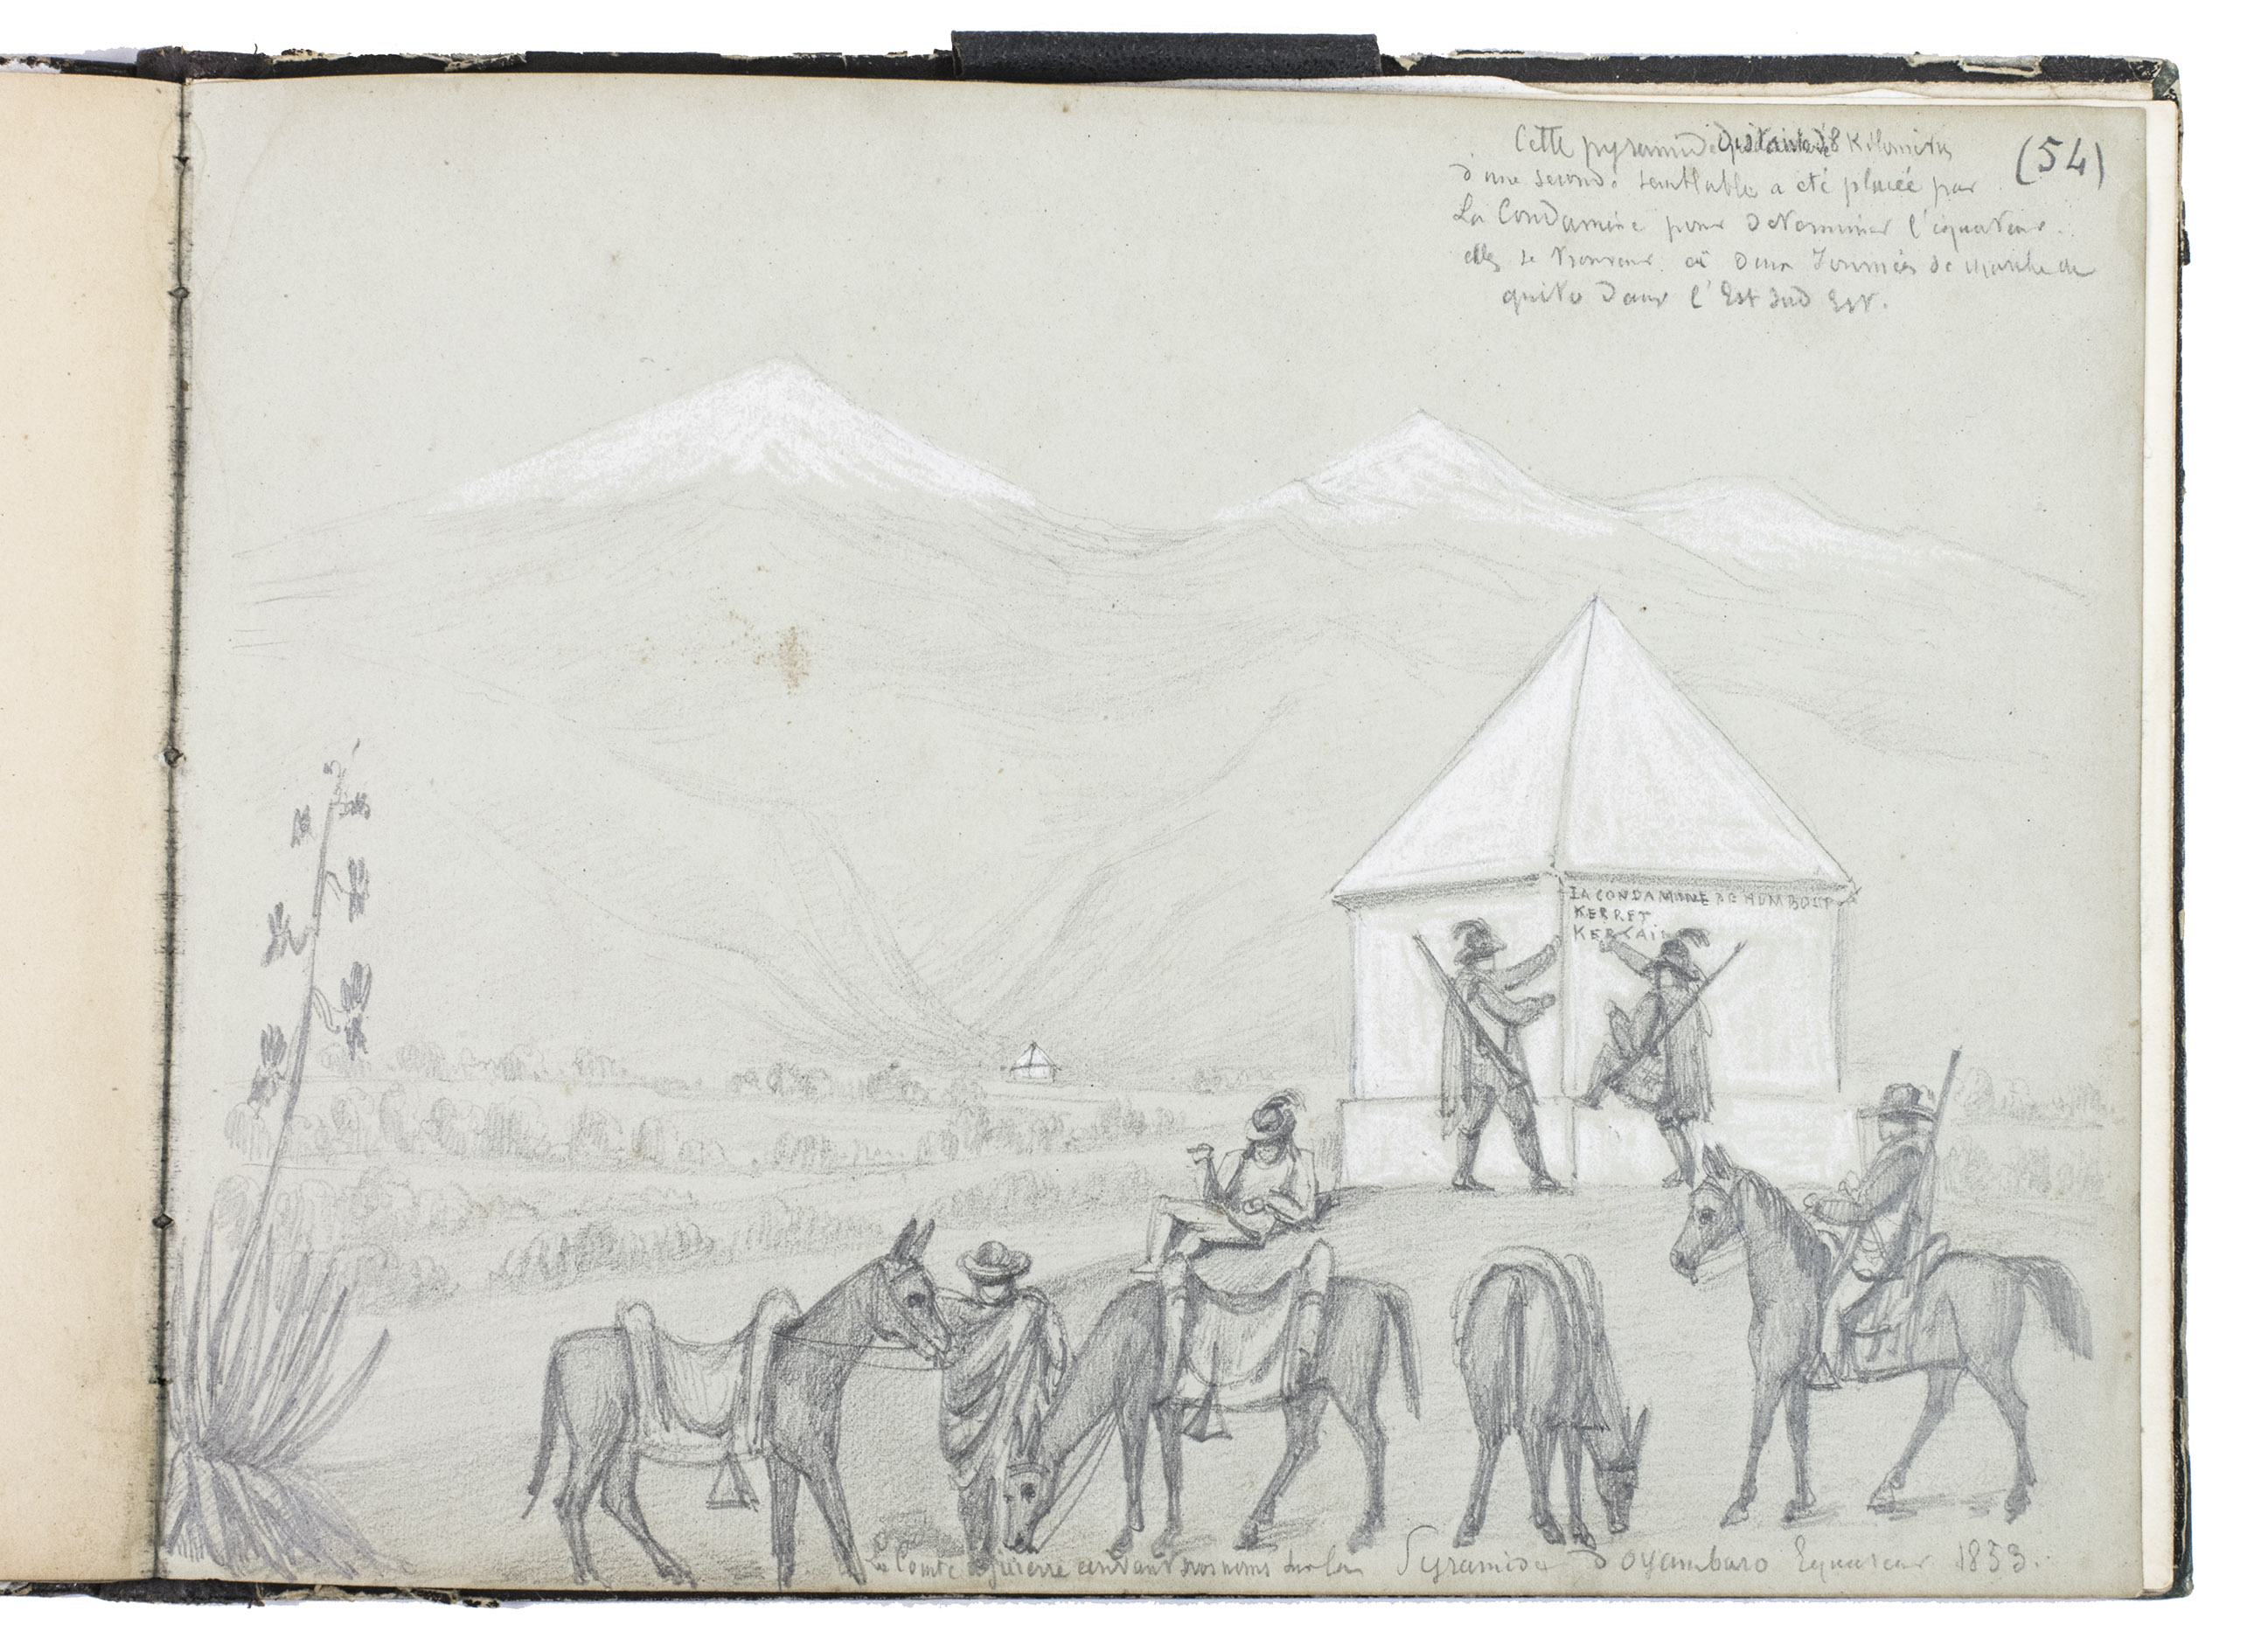 (54)
Cette pyramide distante de 8 Kilometres
d'une seconde semblable a eté placée par
La Condamine pour determiner l'equateur.
elles se trouvent a deux Journées de marche de
quito dans l'Est Sud Est.
LA CONDAMINE DE HUMBOLT
KERRET
KERSAI
Le Comte et pierre ecrivant nos noms sur la Pyramide d'oyambaro Equateur 1853.